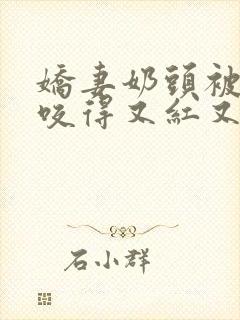 嬌妻奶頭被
咬得又紅又
石小群